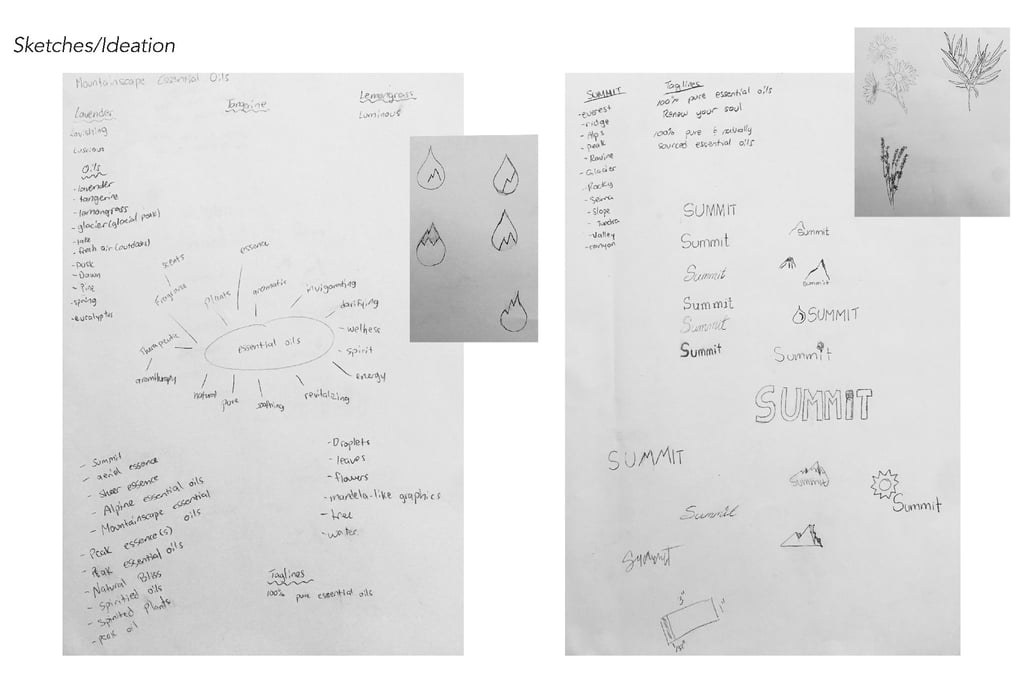 Sketches/Ideation
Mountainscape Essential Oils
Lavender
Tangerine
Lemongrass
Luminous
Lavishing
Luscious
Oils
- lavender
- tangerine
- lemongrass
- glacier (glacial peak)
- lake
- fresh air (outdoors)
- Dusk
- Dawn
- Pine
- spring
- eucalyptus
scents
fragrance
plants
essence
aromatic
invigorating
clarifying
wellness
spirit
energy
revitalizing
soothing
pure
natural
aromatherapy
Therapeutic
essential oils
- Summit
- aerial essence
- sheer essence
- Alpine essential oils
- Mountainscape essential oils
- Peak essence(s)
- Peak essential oils
- Natural Bliss
- spirited oils
- Spirited Plants
- peak oil
- Droplets
- leaves
- flowers
- mandela-like graphics
- tree
- water
Taglines
100% pure essential oils
SUMMIT
- everest
- ridge
- Alps
- peak
- Ravine
- Glacier
- Rocky
- Sierra
- Slope
- Tundra
- Valley
- canyon
Taglines
100% pure essential oils
Renew your soul
100% pure & naturally
sourced essential oils
SUMMIT
Summit
Summit
Summit
Summit
Summit
Summit
Summit
SUMMIT
Summit
SUMMIT
SUMMIT
Summit
Summit
Summit
Summit
3"
1"